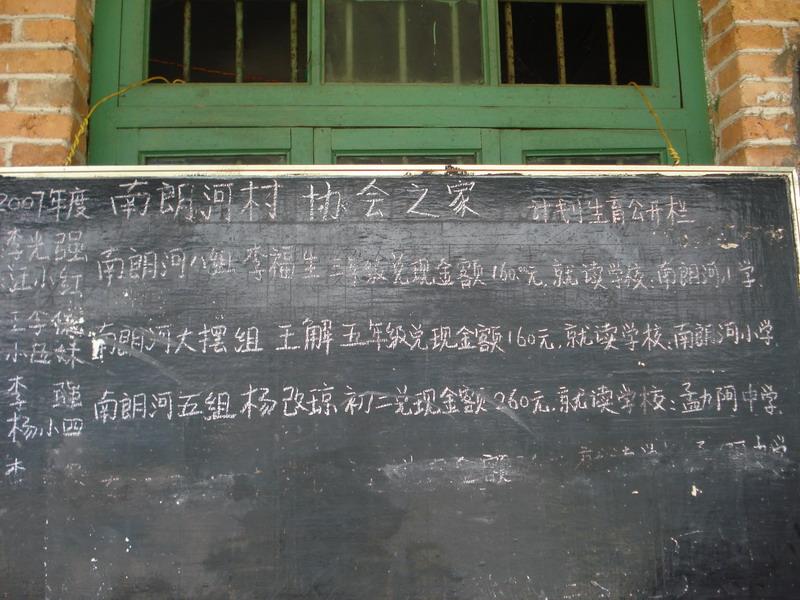 2007年度 南朗河村 协会之家 计划生育公开栏
李光强
汪小红 南朗河八组 李福生 三年级兑现金额160元.就读学校:南朗河小学.
王李德
小伍妹 南朗河大摆组 王解 五年级兑现金额160元.就读学校:南朗河小学.
李 强
杨小四 南朗河五组 杨改琼 初二兑现金额260元.就读学校:孟力阿中学.
李
额 中学